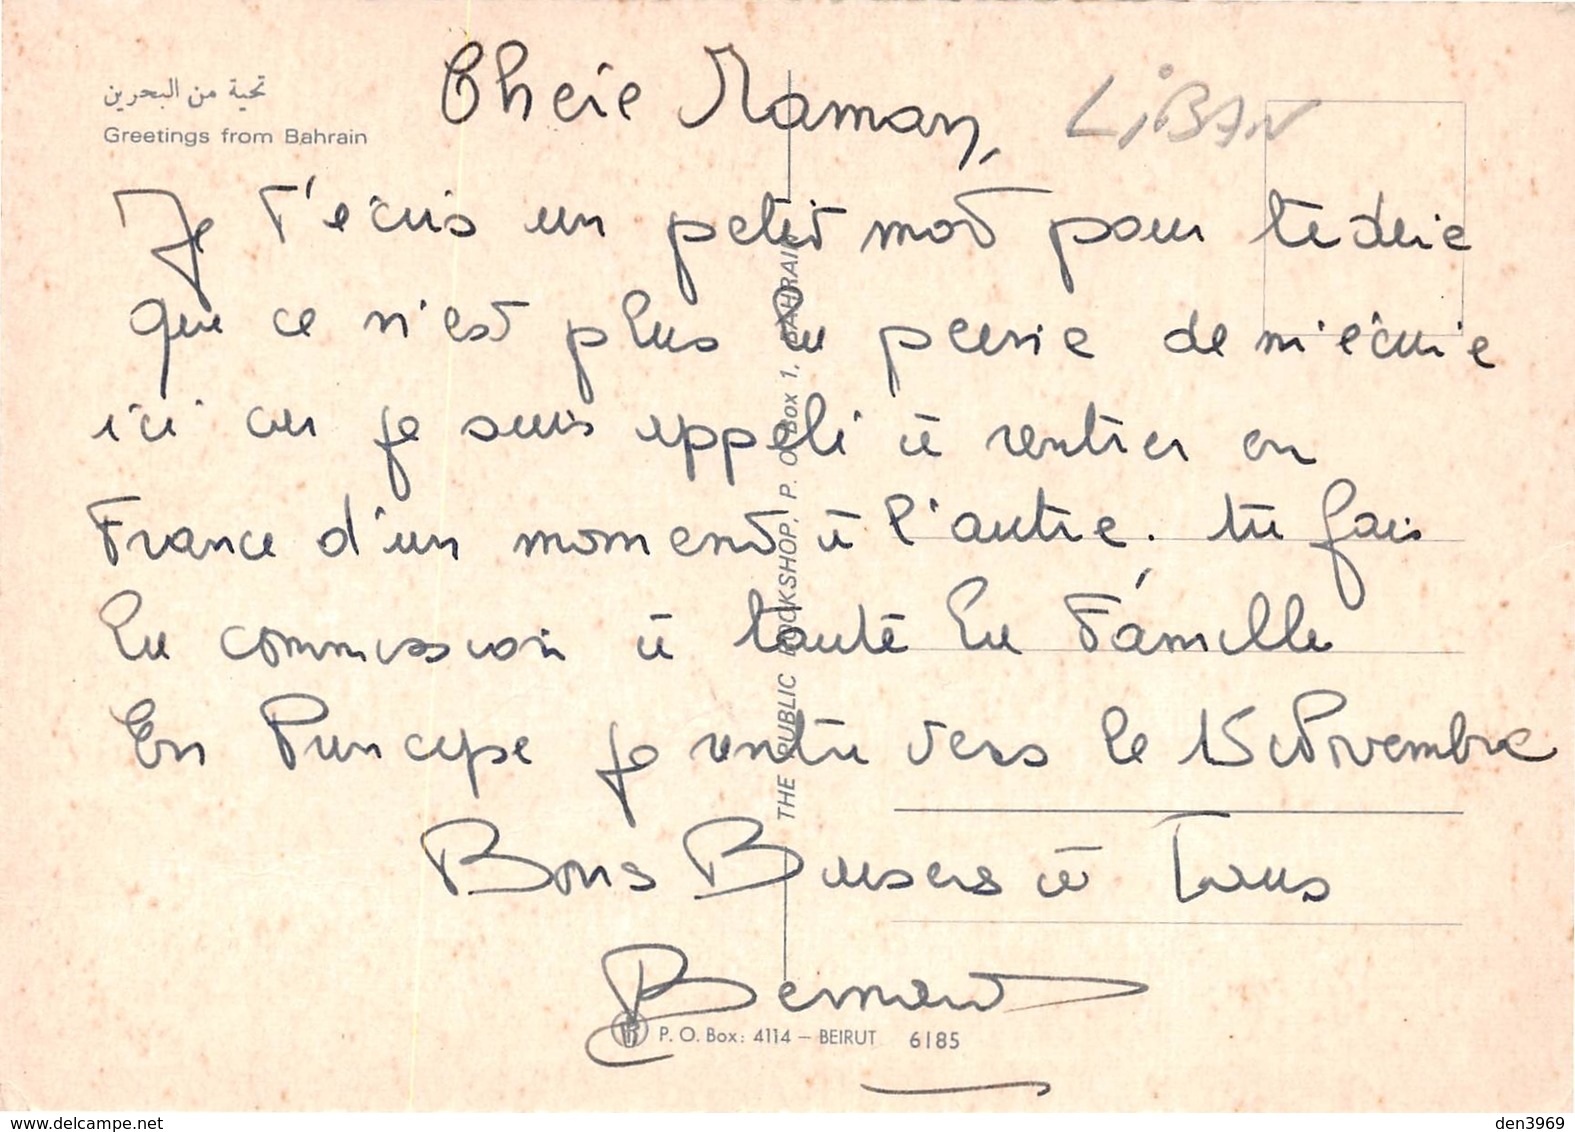 تحية من البحرين
Greetings from Bahrain
Chere Maman,
LiBAN
Je t'ecris un petit mot pour te dire
que ce n'est plus la peine de m'ecrire
ici car je suis appelé à rentrer en
France d'un moment à l'autre. tu fais
la commission à toute la Famille
En Principe je rentre vers le 15 Novembre
Bons Baisers à Tous
Bernard
THE PUBLIC BOOKSHOP, P. O. Box 1, BAHRAIN
P. O. Box: 4114 – BEIRUT 6185
www.delcampe.net
den3969